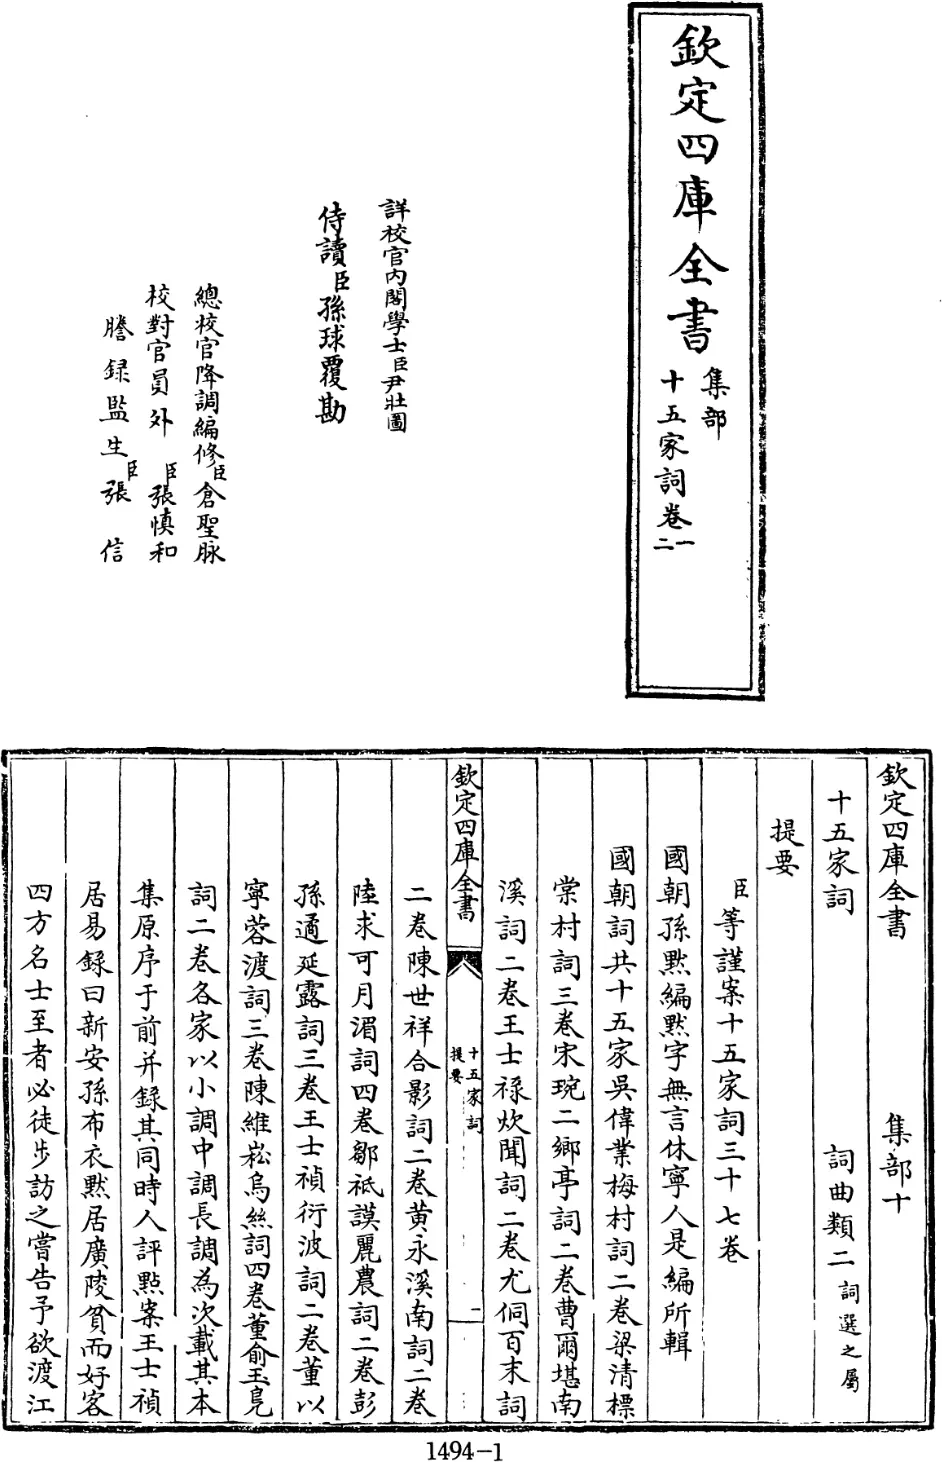 欽定四庫全書
集部
十五家詞卷一
二
詳校官內閣學士臣尹壯圖
侍讀臣孫球覆勘
總校官降調編修臣倉聖脉
校對官員外臣張慎和
謄錄監生臣張信
欽定四庫全書 集部十
十五家詞 詞曲類二詞選之屬
提要
臣等謹案十五家詞三十七卷
國朝孫黙編黙字無言休寧人是編所輯
國朝詞共十五家吳偉業梅村詞二卷梁清標
棠村詞三卷宋琬二鄉亭詞二卷曹爾堪南
溪詞二卷王士祿炊聞詞二卷尤侗百末詞
欽定四庫全書
十五家詞
提要
一
二卷陳世祥含影詞二卷黄永溪南詞二卷
陸求可月湄詞四卷鄒祗謨麗農詞二卷彭
孫遹延露詞三卷王士禎衍波詞二卷董以
寧蓉渡詞三卷陳維崧烏絲詞四卷董俞玉鳧
詞二卷各家以小調中調長調為次載其本
集原序于前并錄其同時人評點案王士禎
居易錄曰新安孫布衣黙居廣陵貧而好客
四方名士至者必徒步訪之嘗告予欲渡江
1494-1